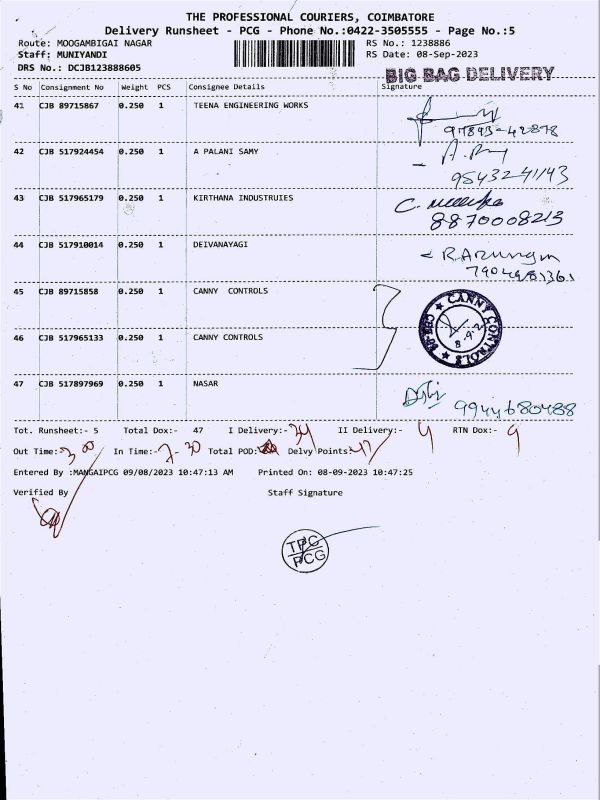 THE PROFESSIONAL COURIERS, COIMBATORE
Delivery Runsheet - PCG - Phone No.:0422-3505555 - Page No.:5
Route: MOOGAMBIGAI NAGAR RS No.: 1238886
Staff: MUNIYANDI RS Date: 08-Sep-2023
DRS No.: DCJB123888605 BIG BAG DELIVERY
S No Consignment No Weight PCS Consignee Details Signature
41 CJB 89715867 0.250 1 TEENA ENGINEERING WORKS
97893-42878
42 CJB 517924454 0.250 1 A PALANI SAMY
9543241143
43 CJB 517965179 0.250 1 KIRTHANA INDUSTRUIES C.
8870008213
44 CJB 517910014 0.250 1 DEIVANAYAGI
45 CJB 89715858 0.250 1 CANNY CONTROLS
CANNY CONTROLS
8.9.2
46 CJB 517965133 0.250 1 CANNY CONTROLS
47 CJB 517897969 0.250 1 NASAR
9944680488
Tot. Runsheet:- 5 Total Dox:- 47 I Delivery:- 34 II Delivery:- 4 RTN Dox:- 9
Out Time:- 3 00 In Time:- 7-30 Total POD: Delvy Points: 47
Entered By :MANGAIPCG 09/08/2023 10:47:13 AM Printed On: 08-09-2023 10:47:25
Verified By Staff Signature
TPC
PCG